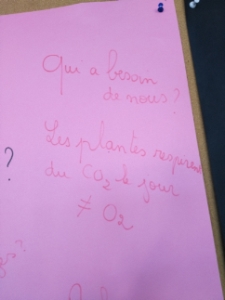 Qui a besoin
de nous ?
Les plantes respirent
du CO₂ le jour
≠ O₂
?